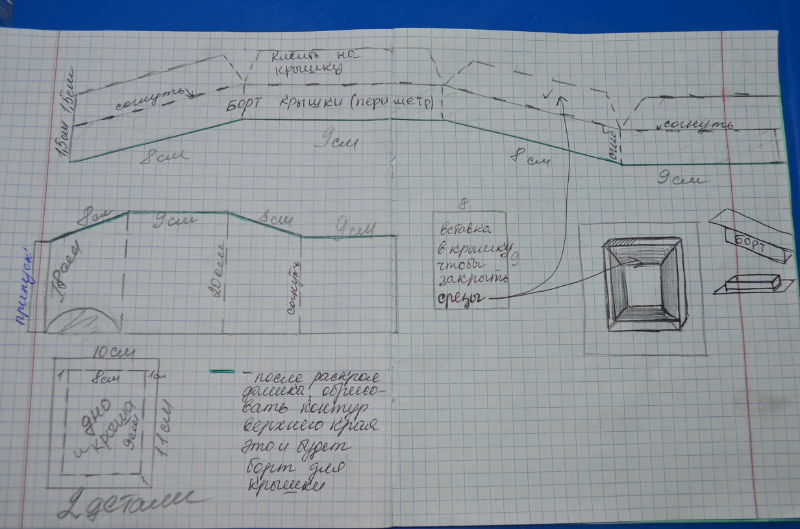 клеить на
крышку
1,5см
согнуть
Борт крышки (периметр)
1,5см
8см
9см
8см
сгиб
согнуть
9см
8см
9см
8см
9см
припуск
18см
20см
согнуть
8
вставка
в крышку
чтобы
закрыть
срезы
9
борт
10см
1
8см
1см
дно
и крыша
9см
11см
1
2 детали
- после раскроя
домика, обрисо-
вать контур
верхнего края
это и будет
борт для
крышки